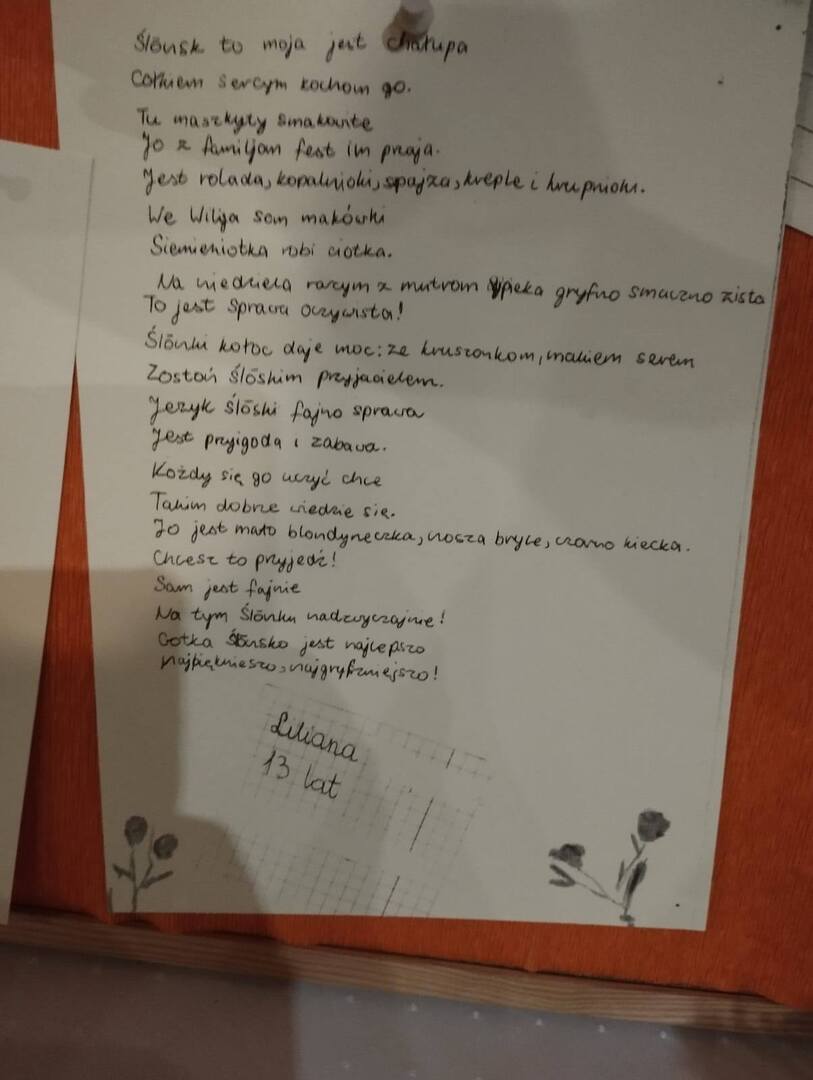 Ślōnsk to moja jest chałupa
Cołkiem sercym kochom go.
Tu maszkyty smakowite
Jo z familjom fest im przaja.
Jest rolada, kopalnioki, szpajza, kreple i krupnioki.
We Wilija som makówki
Siemieniotka robi ciotka.
Na niedziela razym z mutrom upieka gryfno smaczno zista
To jest sprawa oczywista!
Ślōnki kołoc daje moc: ze kruszonkom, makiem serem
Zostoń Ślōskim przyjacielem.
Jezyk Ślōski fajno sprawa
Jest przigoda i zabawa.
Kożdy się go uczyć chce
Takim dobrze wiedzie się.
Jo jest mało blondyneczka, nosza bryle, czorno kiecka.
Chcesz to przyjedź!
Sam jest fajnie
Na tym Ślōnku nadzwyczajnie!
Gotka Ślōnsko jest najlepszo
najpiękniejszo, najgryfniejszo!
Liliana
13 lat